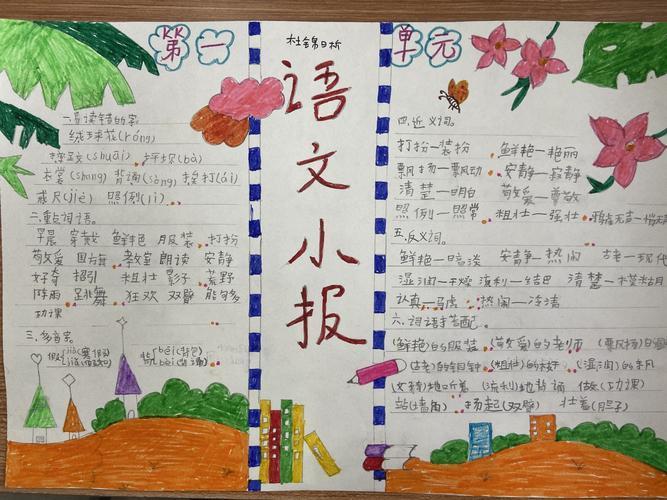 第一
一.易读错的字.
绒球花(róng)
摔跤(shuāi) 坪坝(bà)
衣裳(shang) 背诵(sòng) 挨打(ái)
戒尺(jiè) 照例(lì)
二.重点词语.
早晨 穿戴 鲜艳 服装 打扮
敬爱 国旗 教室 朗读 安静
好奇 招引 粗壮 影子 荒野
阵雨 跳舞 狂欢 双臂 能够
功课
三.多音字.
假 jià(寒假)
jiǎ
背 bēi(背包)
bèi(背诵)
杜锦日析
语文小报
单元
四.近义词。
打扮一装扮 鲜艳一艳丽
飘扬一飘动 安静一寂静
清楚一明白 敬爱一尊敬
照例一照常 粗壮一强壮
五.反义词。
鲜艳一暗淡 安静一热闹 古老一现代
湿润一干燥 流利一结巴 清楚一模糊
认真一马虎 热闹一冷清
六.词语搭配.
(鲜艳)的服装 (敬爱)的老师 (飘扬)的
(古老)的铜钟 (粗壮)的枝干 (湿润)的
(安静)地听着 (流利)地背诵 做(功课)
站(墙角) 扬起(双臂)